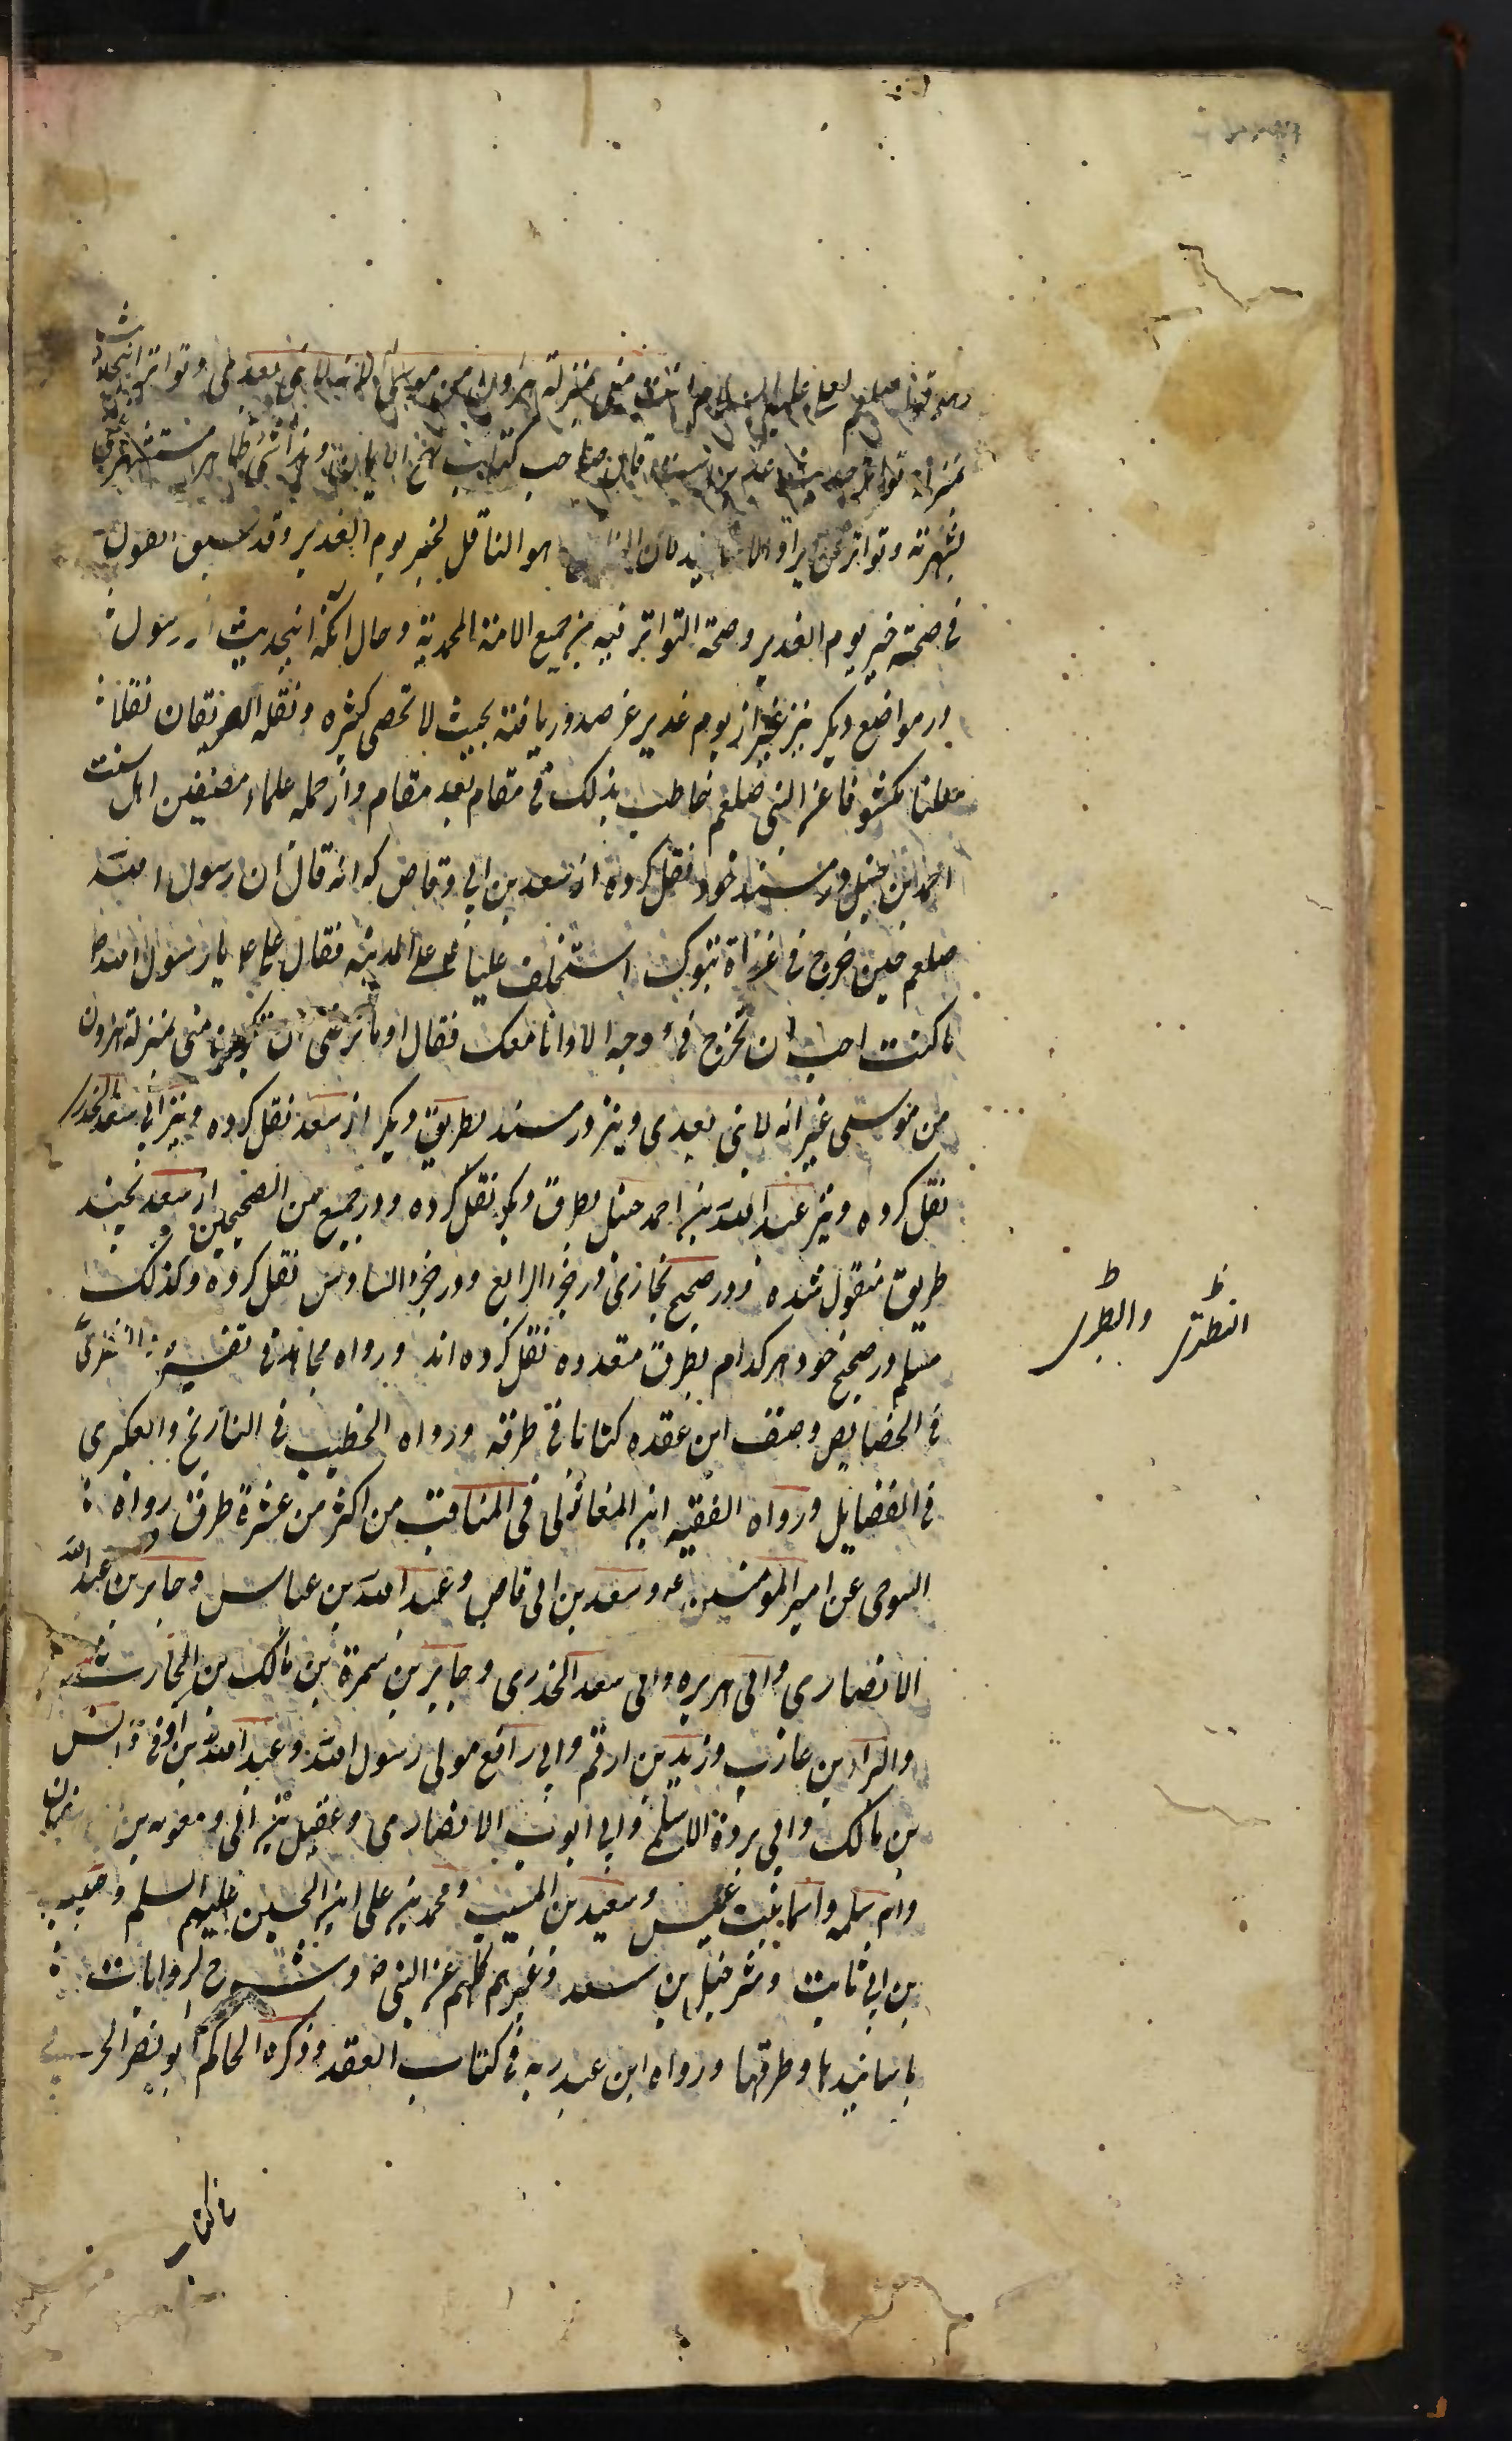 وهو قوله صلعم لعلی علیه السلام انت منی بمنزلة هرون من موسی الا انه لا نبی بعدی و تواتر اینحدیث
بمنزله تواتر حدیث غدیرست قال صاحب کتاب نهج الایمان و هذا شئ ظاهر مستغنی
بشهرته و تواتره عن ایراد الاسانید لان الناقل هو الناقل لخبر یوم الغدیر وقد سبق القول
فی صحته خبر یوم الغدیر وصحة التواتر فیه من جمیع الامة المحمدیة و حال آنکه اینحدیث از رسول
در مواضع دیگر نیز غیر از یوم غدیر عز صدور یافته بحیث لا تحصی کثره و نقله الفریقان نقلا
معلنا مکشوفا عن النبی صلعم خاطب بذلک فی مقام بعد مقام و از جمله علماء مصنفین اهل سنت
احمد بن حنبل در مسند خود نقل کرده از سعد بن ابی وقاص که انه قال ان رسول الله
صلعم حین خرج فی غزاة تبوک استخلف علیا ع علی المدینه فقال علی ع یا رسول الله ص
ما کنت احب ان تخرج فی وجه الا وانا معک فقال او ما ترضی ان تکون منی بمنزلة هرون
من موسی غیر انه لا نبی بعدی و نیز در مسند بطریق دیگر از سعد نقل کرده و نیز ابی سعد الخدری
نقل کرده و نیز عبد الله بن احمد حنبل بطرق دیگر نقل کرده و در جمیع من الصحیحین از سعد بچند
طریق منقول شده و در صحیح بخاری در جزء الرابع و در جزء السادس نقل کرده و کذلک
مسلم در صحیح خود هر کدام بطرق متعدده نقل کرده اند و رواه مجاهد فی تفسیره
فی الخصایص و صنف ابن عقده کتابا فی طرقه و رواه الخطیب فی التاریخ والعکبری
فی الفضایل و رواه الفقیه ابن المغازلی فی المناقب من اکثر من عشرة طرق رواه
التنوخی عن امیر المومنین ع و سعد بن ابی قاص و عبد الله بن عباس و جابر بن عبد الله
الانصاری و ابی هریره و ابی سعد الخدری و جابر بن سمرة بن مالک بن الحارث
والبراء بن عازب و زید بن ارقم و ابی رافع مولی رسول الله و عبد الله بن اوفی و انس
بن مالک و ابی بردة الاسلمی و ابی ایوب الانصاری و عقیل بن ابی و معویه بن سفیان
و ام سلمه و اسما بنت عمیس و سعید بن المسیب و محمد بن علی ابن الحسین علیهم السلم و حبیب
بن ابی ثابت و شرحبیل بن سعد و غیرهم کلهم عن النبی ص و شرح الروایات
باسانیدها و طرقها و رواه ابن عبد ربه فی کتاب العقد و ذکره الحاکم ابو نصر الحربی
النطنزی والطبری
فی کتاب